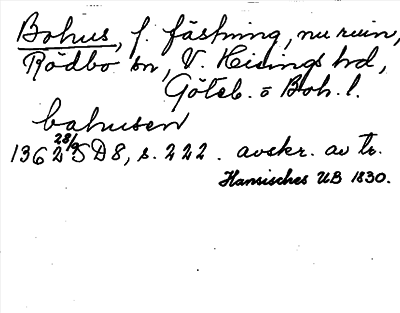 Bohus, f. fästning, nu ruin,
Rödbo sn, V. Hisings hd,
Göteb. o Boh. l.
bahusen
1362 28/9 SD8, s. 222. avskr. av tr.
Hansisches UB 1830.